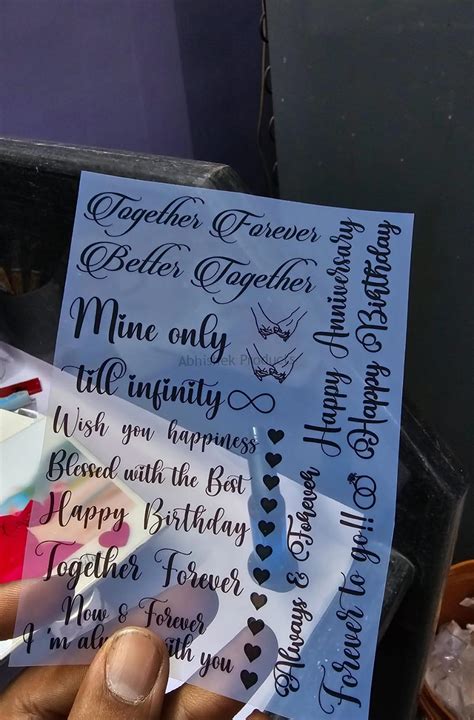 Together Forever
Better Together
Mine only
till infinity
Wish you happiness
Blessed with the Best
Happy Birthday
Together Forever
Now & Forever
I'm with you
Happy Anniversary
Happy Birthday
Always & Forever
Forever to go!!
Abhishek Products